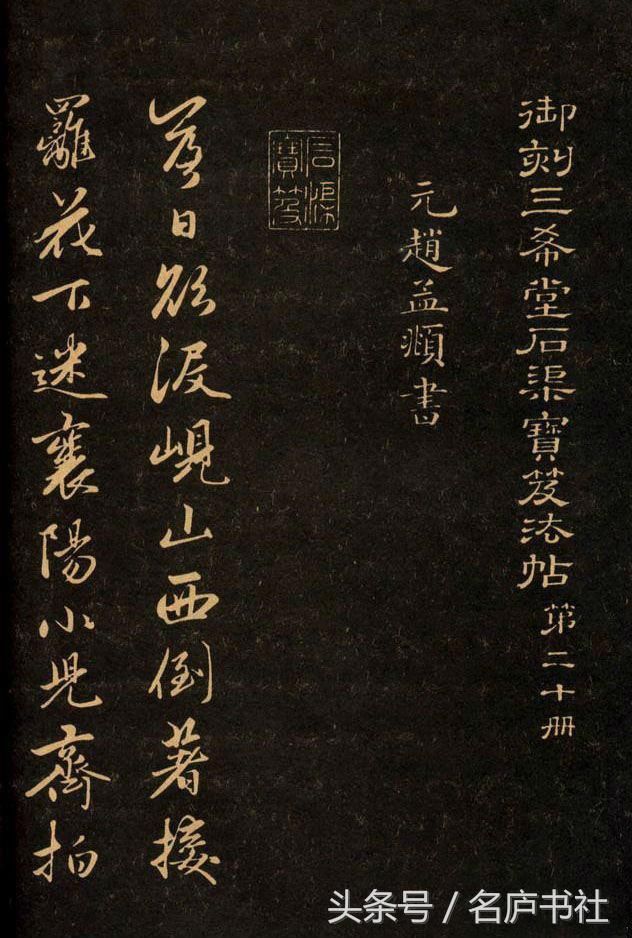 御刻三希堂石渠寶笈法帖 第二十册
元趙孟頫書
石渠寶笈
落日欲没峴山西倒著接
䍦花下迷襄陽小兒齊拍
头条号 / 名庐书社